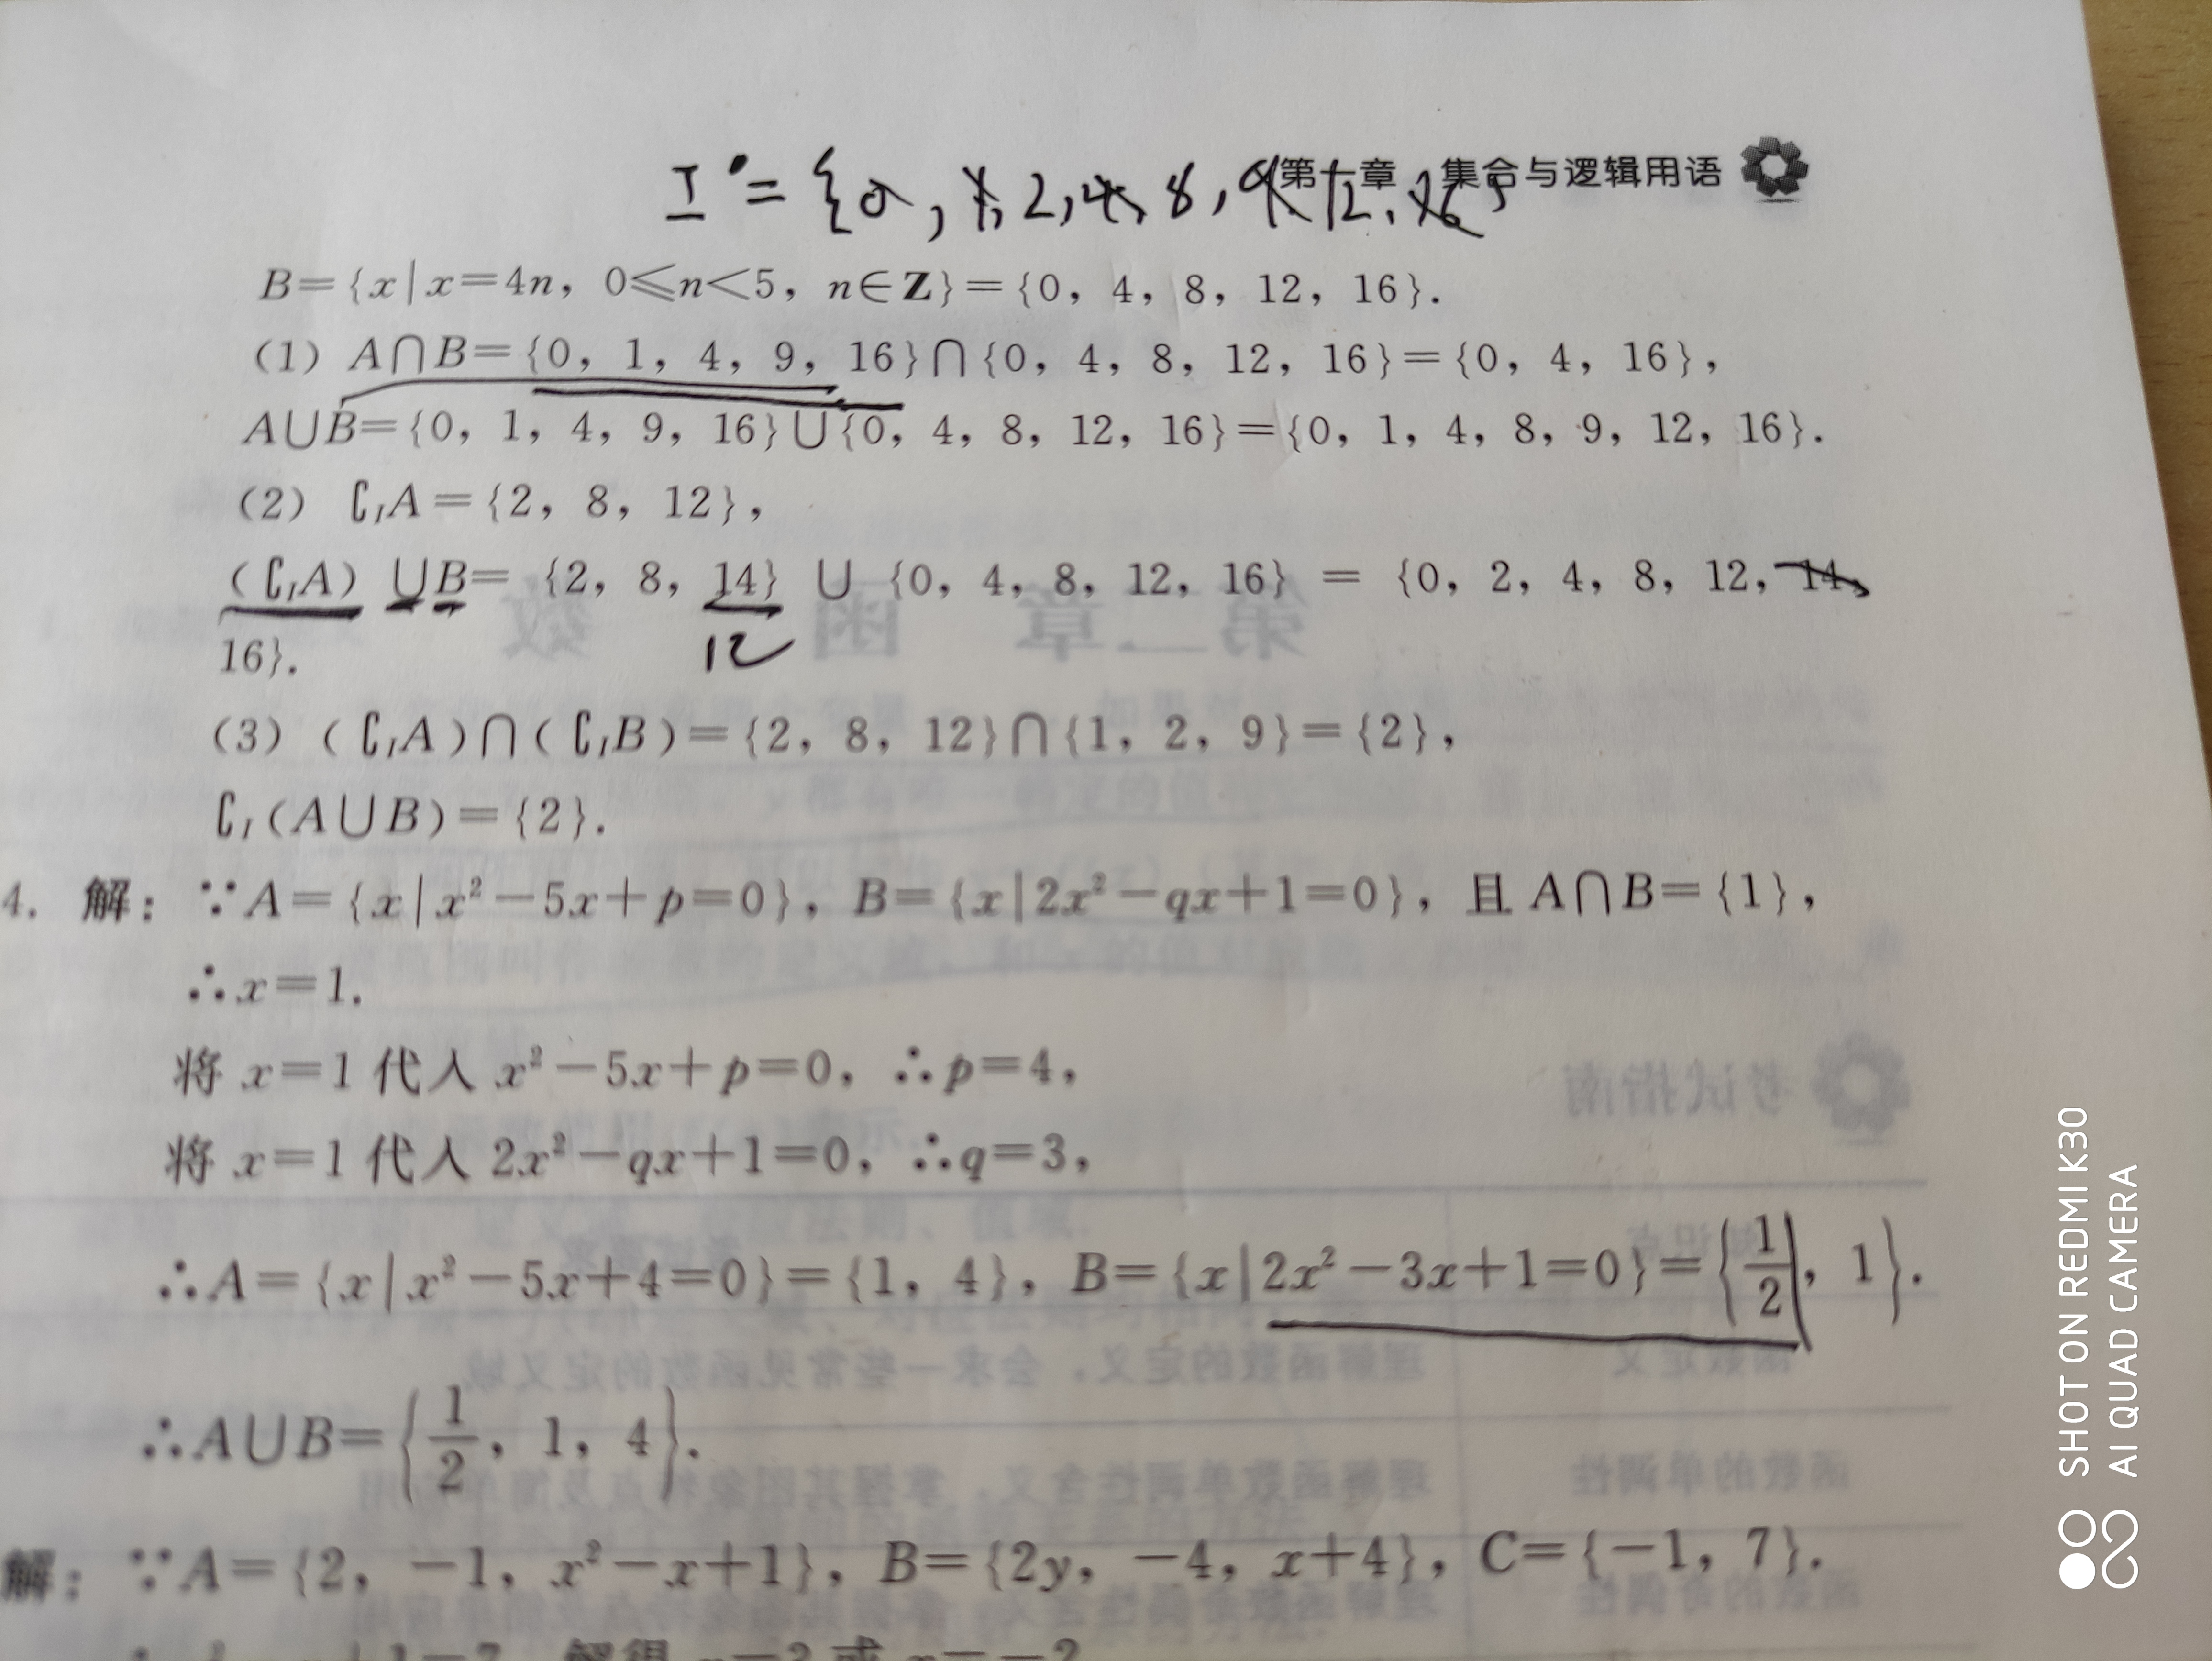 第一章 集合与逻辑用语
I = {0, 1, 2, 4, 8, 9, 12, 16}
B={x|x=4n, 0≤n<5, n∈Z}={0, 4, 8, 12, 16}.
(1) A∩B={0, 1, 4, 9, 16}∩{0, 4, 8, 12, 16}={0, 4, 16},
A∪B={0, 1, 4, 9, 16}∪{0, 4, 8, 12, 16}={0, 1, 4, 8, 9, 12, 16}.
(2) ∁IA={2, 8, 12},
(∁IA) ∪B= {2, 8, 14} ∪ {0, 4, 8, 12, 16} = {0, 2, 4, 8, 12, 14,
12
16}.
(3) (∁IA)∩(∁IB)={2, 8, 12}∩{1, 2, 9}={2},
∁I(A∪B)={2}.
4. 解: ∵A={x|x²-5x+p=0}, B={x|2x²-qx+1=0}, 且 A∩B={1},
∴x=1.
将 x=1 代入 x²-5x+p=0, ∴p=4,
将 x=1 代入 2x²-qx+1=0, ∴q=3,
∴A={x|x²-5x+4=0}={1, 4}, B={x|2x²-3x+1=0}={1/2, 1}.
∴A∪B={1/2, 1, 4}.
解: ∵A={2, -1, x²-x+1}, B={2y, -4, x+4}, C={-1, 7}.
SHOT ON REDMI K30
AI QUAD CAMERA